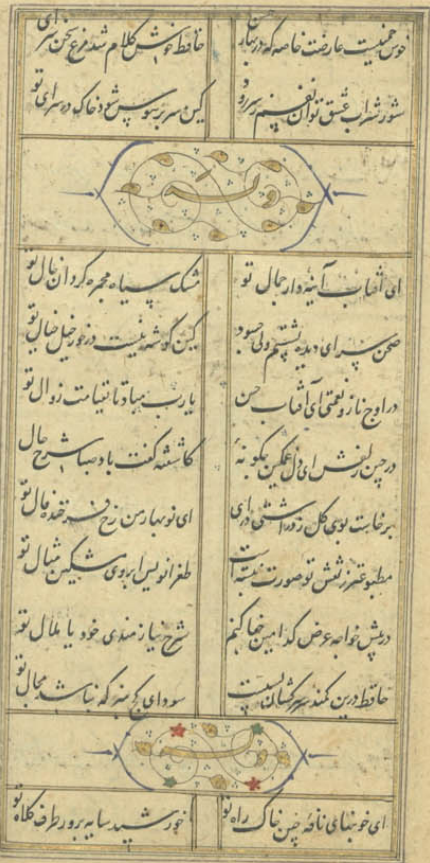 خوش چمنیست عارضت خاصه که در بهار حسن حافظ خوش کلام شد مرغ سخن سرای
شور شراب عشق تو آن نفسم رود ز سر کین سر پر هوس شود خاک در سرای تو
وله
ای آفتاب آینه دار جمال تو مشک سیاه مجمره گردان خال تو
صحن سرای دیده بشستم ولی چسود کین گوشه نیست در خور خیل خیال تو
در اوج ناز و نعمتی ای آفتاب حسن یارب مباد تا بقیامت زوال تو
در چین زلفش ای دل مسکین چگونهٔ کاشفته گفت باد صبا شرح حال
برخاست بوی گل ز در آشتی درای ای نوبهار من رخ فرخنده فال تو
مطبوعتر ز نقش تو صورت نبسته است طغرانویس ابروی مشکین مثال تو
در پیش خواجه عرض کدامین جفا کنم شرح نیازمندی خود یا ملال تو
حافظ درین کمند سر سرکشان بسیست سودای کج مپز که نباشد مجال تو
وله
ای خونبهای نافه چین خاک راه تو خورشید سایه پرور طرف کلاه تو